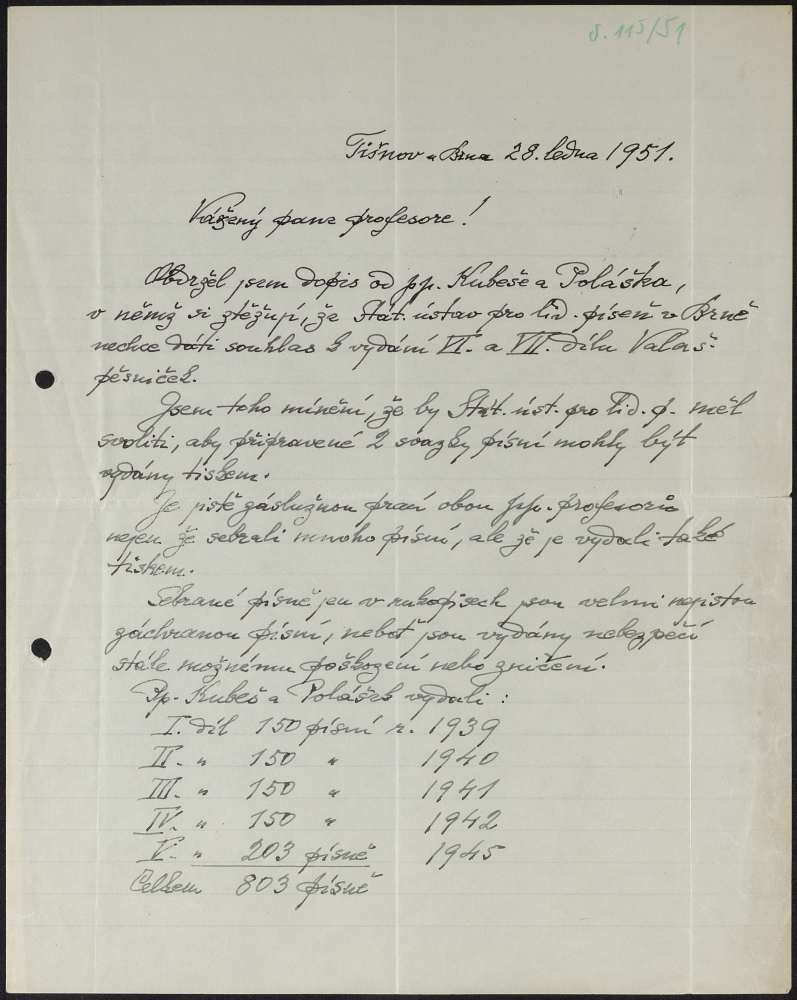 č. 115/51
Tišnov u Brna 28. ledna 1951.
Vážený pane profesore!
Obdržel jsem dopis od pp. Kubeše a Poláška,
v němž si ztěžují, že Stát. ústav pro lid. píseň v Brně
nechce dáti souhlas k vydání VI. a VII. dílu Valaš.
pěsniček.
Jsem toho mínění, že by Stát. úst. pro lid. p. měl
svoliti, aby připravené 2 svazky písní mohly být
vydány tiskem.
Je jistě záslužnou prací obou pp. profesorů
nejen že sebrali mnoho písní, ale že je vydali také
tiskem.
Sebrané písně jen v rukopisech jsou velmi nejistou
záchranou písní, neboť jsou vydány nebezpečí
stále možnému poškození nebo zničení.
Pp. Kubeš a Polášek vydali :
I. díl 150 písní r. 1939
II. " 150 " 1940
III. " 150 " 1941
IV. " 150 " 1942
V. " 203 písně 1945
Celkem 803 písně